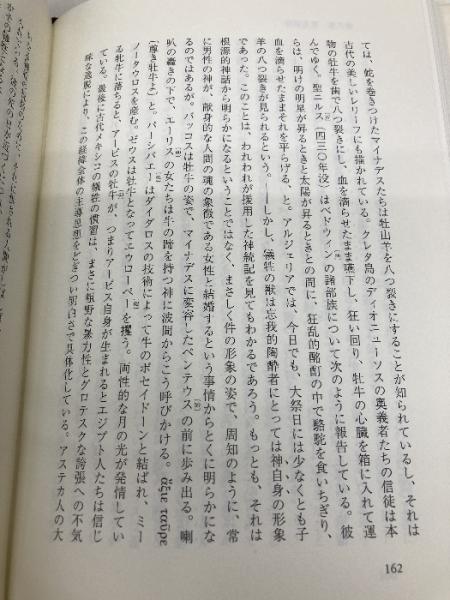 ては、蛇を巻きつけたマイナデスたちは牡山羊を八つ裂きにすることが知られているし、それは
古代の美しいレリーフにも描かれている。クレタ島のディオニューソスの奥義者たちの信徒は本
物の牡牛を歯で八つ裂きにし、血を滴らせたまま嚥下し、狂い回り、牡牛の心臓を箱に入れて運
んでゆく。聖ニルス(四三〇年没)はベドウィンの諸部族について次のように報告している。彼
らは、明けの明星が昇るときと太陽が昇るときとの間に、狂乱的酩酊の中で駱駝を食いちぎり、
血を滴らせたままそれを平らげる、と。アルジェリアでは、今日でも、大祭日には少なくとも子
羊の八つ裂きが見られるという。――しかし、犠牲の獣は忘我的陶酔者にとっては神自身の形象
であった。このことは、われわれが援用した神統記を見てもわかるであろう。もっとも、それは
根源的神話から明らかになるということではなく、まさしく件の形象の姿で、周知のように、常
に男性の神が、献身的な人間の魂の象徴である女性と結婚するという事情からとくに明らかにな
るのではあるが。バッコスは牡牛の姿で、マイナデスに変容したペンテウスの前に歩み出る。喇
叭の轟きの下で、エーリスの女たちは牛の蹄を持つ神に波間からこう呼びかける。ἄξιε ταῦρε
(尊き牡牛よ)と。パーシパエーはダイダロスの技術によって牛のポセイドーンと結ばれ、ミー
ノータウロスを産む。ゼウスは牡牛となってエウローペーを攫う。両性的な月の光が発情してい
る牝牛に落ちると、アーピスの牡牛が、つまりアーピス自身が生まれるとエジプト人たちは信じ
ている。最後に古代メキシコの犠牲の慣習は、まさに粗野な暴力性とグロテスクな誇張への不気
味な逸脱により、この経緯全体の主導思想をどぎつい明白さで具体化している。アステカ人の大
162